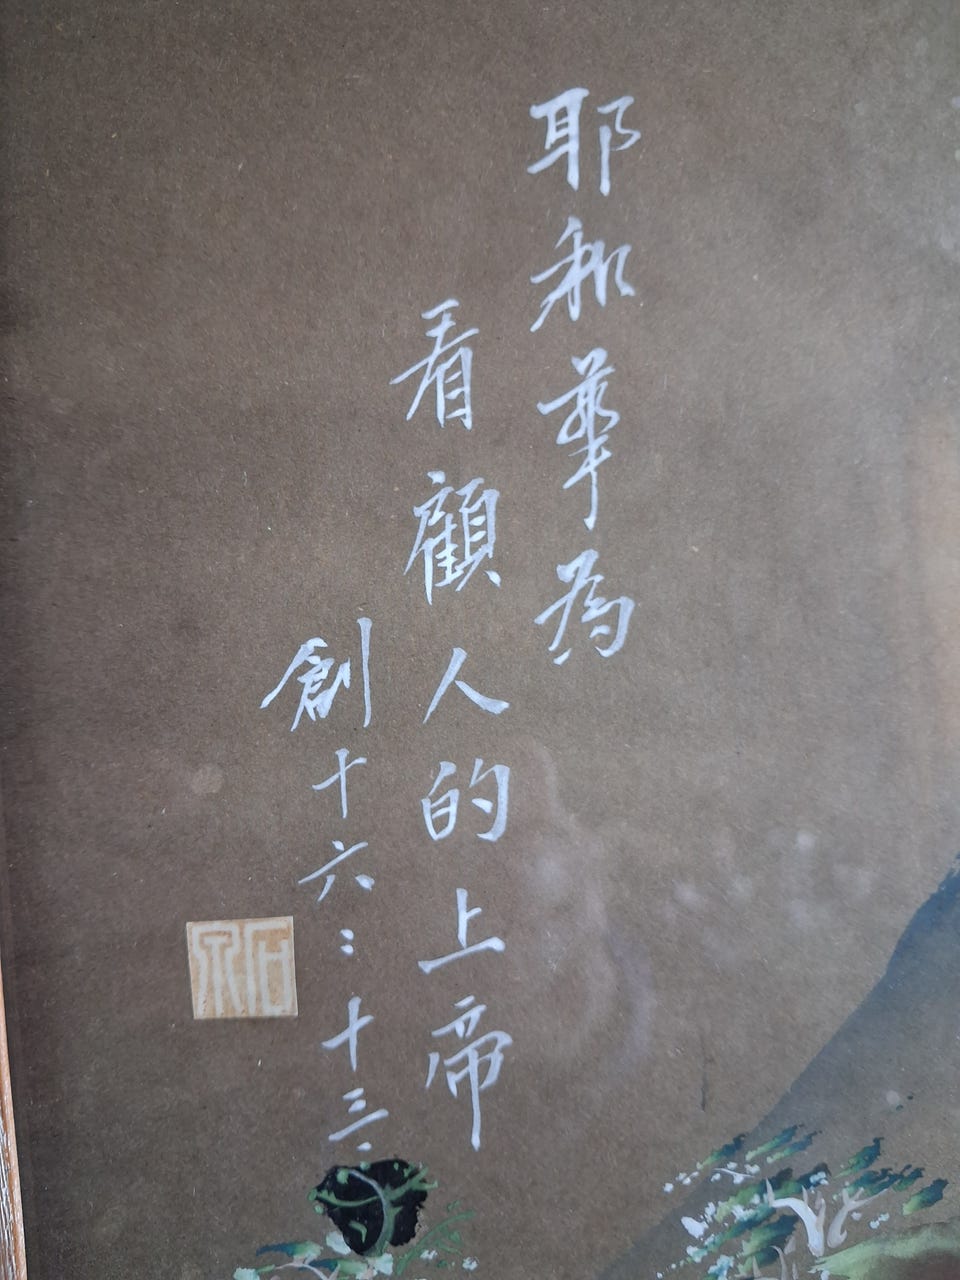 耶和華為
看顧人的上帝
創十六:十三.